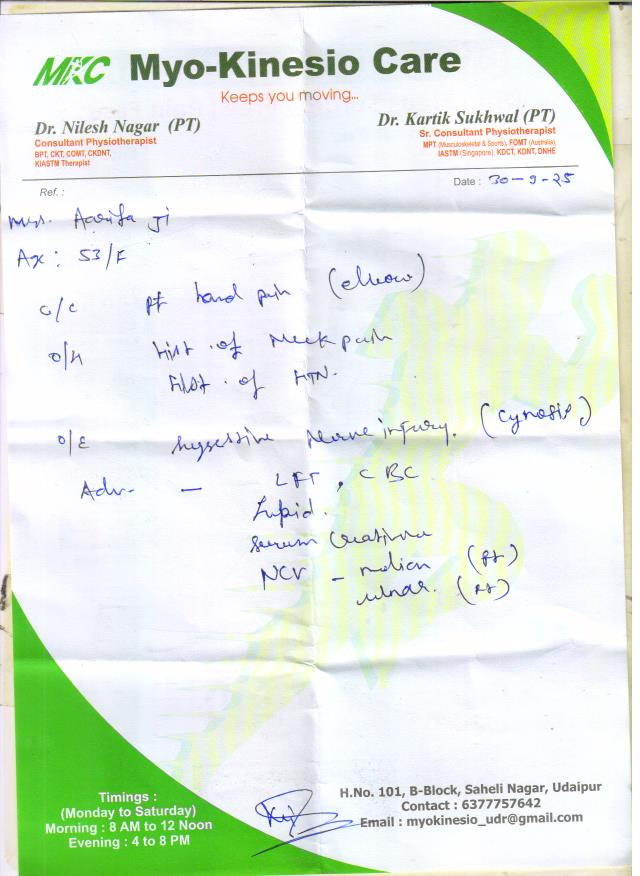 MKC Myo-Kinesio Care
Keeps you moving...
Dr. Nilesh Nagar (PT)
Consultant Physiotherapist
BPT, CKT, COMT, CKDNT,
KIASTM Therapist
Dr. Kartik Sukhwal (PT)
Sr. Consultant Physiotherapist
MPT (Musculoskeletal & Sports), FOMT (Australia),
IASTM (Singapore), KDCT, KDNT, DNHE
Ref. :
Date : 30-9-25
Mrs. Aarifa Ji
Ax: 53/F
c/c Rt hand pain (elbow)
O/H Hist. of Neck pain
Hist. of HTN.
O/E suggestive Nerve injury. (Cynosis)
Adv. - LFT, CBC
Lipid.
Serum Creatinine
NCV - median (Rt)
ulnar. (Rt)
Timings :
(Monday to Saturday)
Morning : 8 AM to 12 Noon
Evening : 4 to 8 PM
H.No. 101, B-Block, Saheli Nagar, Udaipur
Contact : 6377757642
Email : myokinesio_udr@gmail.com